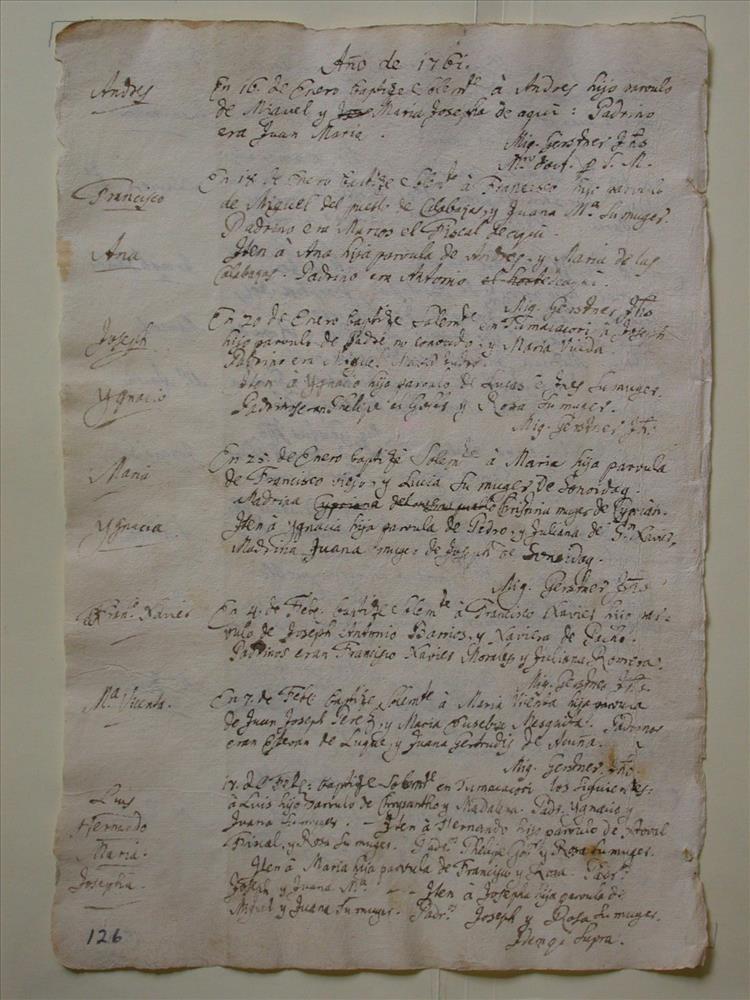 Año de 1761.
Andres
En 16. de Enero baptize Solemte à Andres hijo parvulo
de Miguel y Maria Josepha de aqui: Padrino
era Juan Maria.
Mig. Gerstner Jhs
S. M.
Francisco
En 18. de Enero baptize Solemte à Francisco hijo parvulo
de Miguel del pueblo de Calabazas, y Juana Ma. Su muger.
Padrino era Marcos el Fiscal de aqui.
Ana
Iten à Ana hija parvula de Andres, y Maria de las
Calabazas. Padrino era Antonio
Mig. Gerstner Jhs
Joseph
En 20 de Enero baptize Solemte en Tumacacori à Joseph
hijo parvulo de Padre no conocido, y Maria Viuda.
Padrino era Miguel
Ygnacio
Iten à Ygnacio hijo parvulo de Lucas è Ines Su muger.
Padrinos eran Phelipe el y Rosa Su muger.
Mig. Gerstner Jhs
Maria
En 25. de Enero baptize Solemte à Maria hija parvula
de Francisco viejo, y Lucia Su muger de Sonoidag.
Madrina Christina muger de Cyprian.
Ygnacia
Iten à Ygnacia hija parvula de Pedro, y Juliana de Sn Xavier.
Madrina Juana muger de de Sonoidag.
Mig. Gerstner Jhs
Franco Xavier
En 4. de Febr. baptize Solemte à Francisco Xavier hijo par-
vulo de Joseph Antonio Barrios, y Xaviera de
Padrinos eran Francisco Xavier Morales, y Juliana Romera.
Mig. Gerstner Jhs
Ma. Vicenta.
En 7. de Febr. baptize Solemte à Maria hija parvula
de Juan Joseph Perez, y Maria Eusebia Mesquita. Padrinos
eran Estevan de Luque, y Juana Gertrudis de Acuña.
Mig. Gerstner Jhs
Luis
17. de Febr: baptize Solemte en Tumacacori los siguientes:
à Luis hijo parvulo de Chrysantho y Madalena. Padr. Ygnacio y
Hernando
Juana Su muger. – Iten à Hernando hijo parvulo de
y Rosa Su muger. Padr. Phelipe y Rosa Su muger.
Maria.
Iten à Maria hija parvula de Francisco y Rosa. Padr.
Josepha
Joseph y Juana Ma. – Iten à Josepha hija parvula de
Miguel y Juana Su muger. Padr. Joseph y Rosa Su muger.
Idem qi Supra.
126